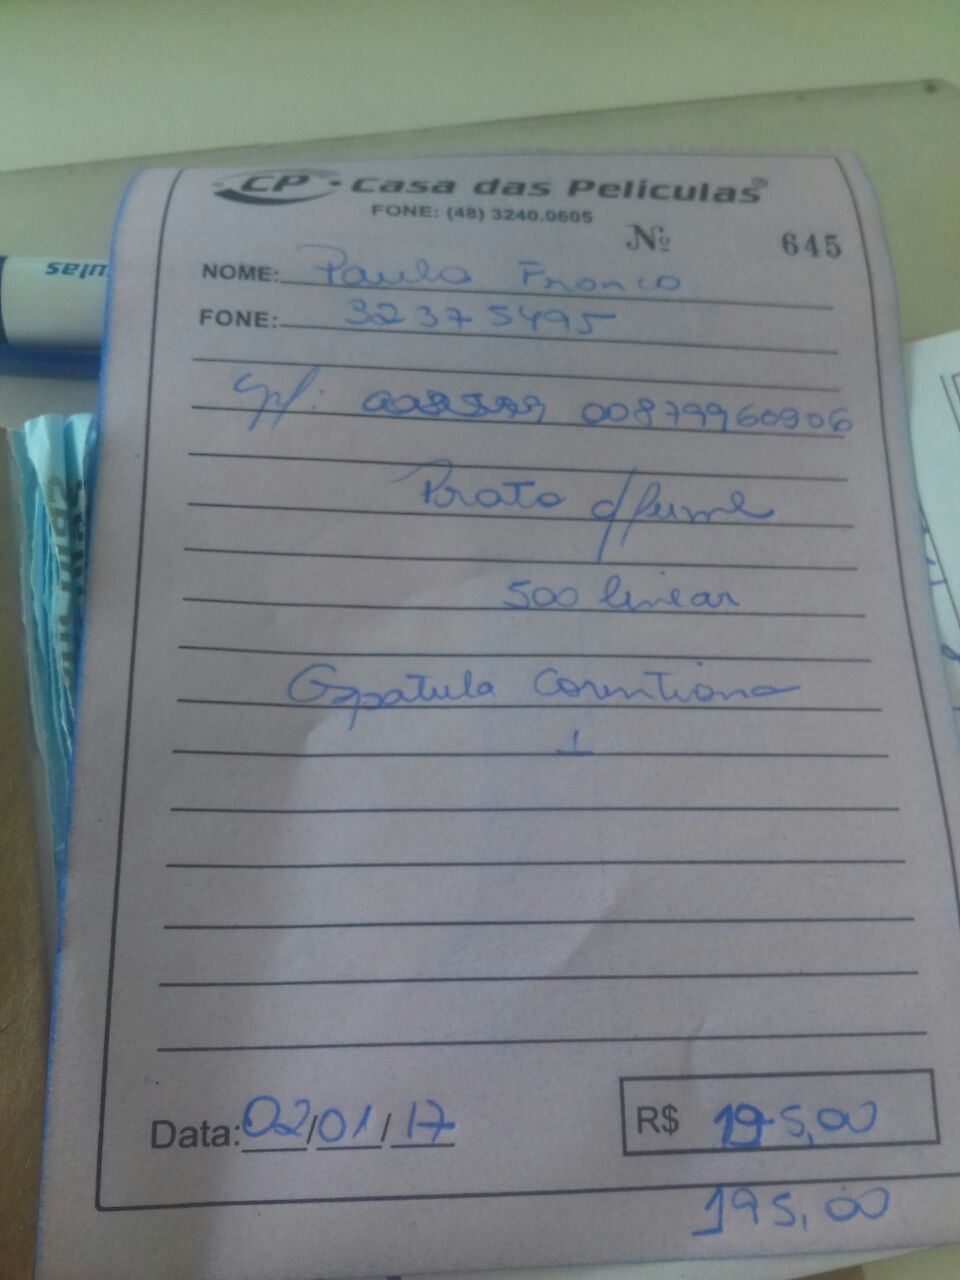 CP - Casa das Películas
FONE: (48) 3240.0605
Nº 645
NOME: Paulo Franco
FONE: 32375495
cpf: 00879960906
Prata c/fumê
500 linear
Espatula Corentiana
1
Data: 02/01/17
R$ 195,00
195,00
ulas